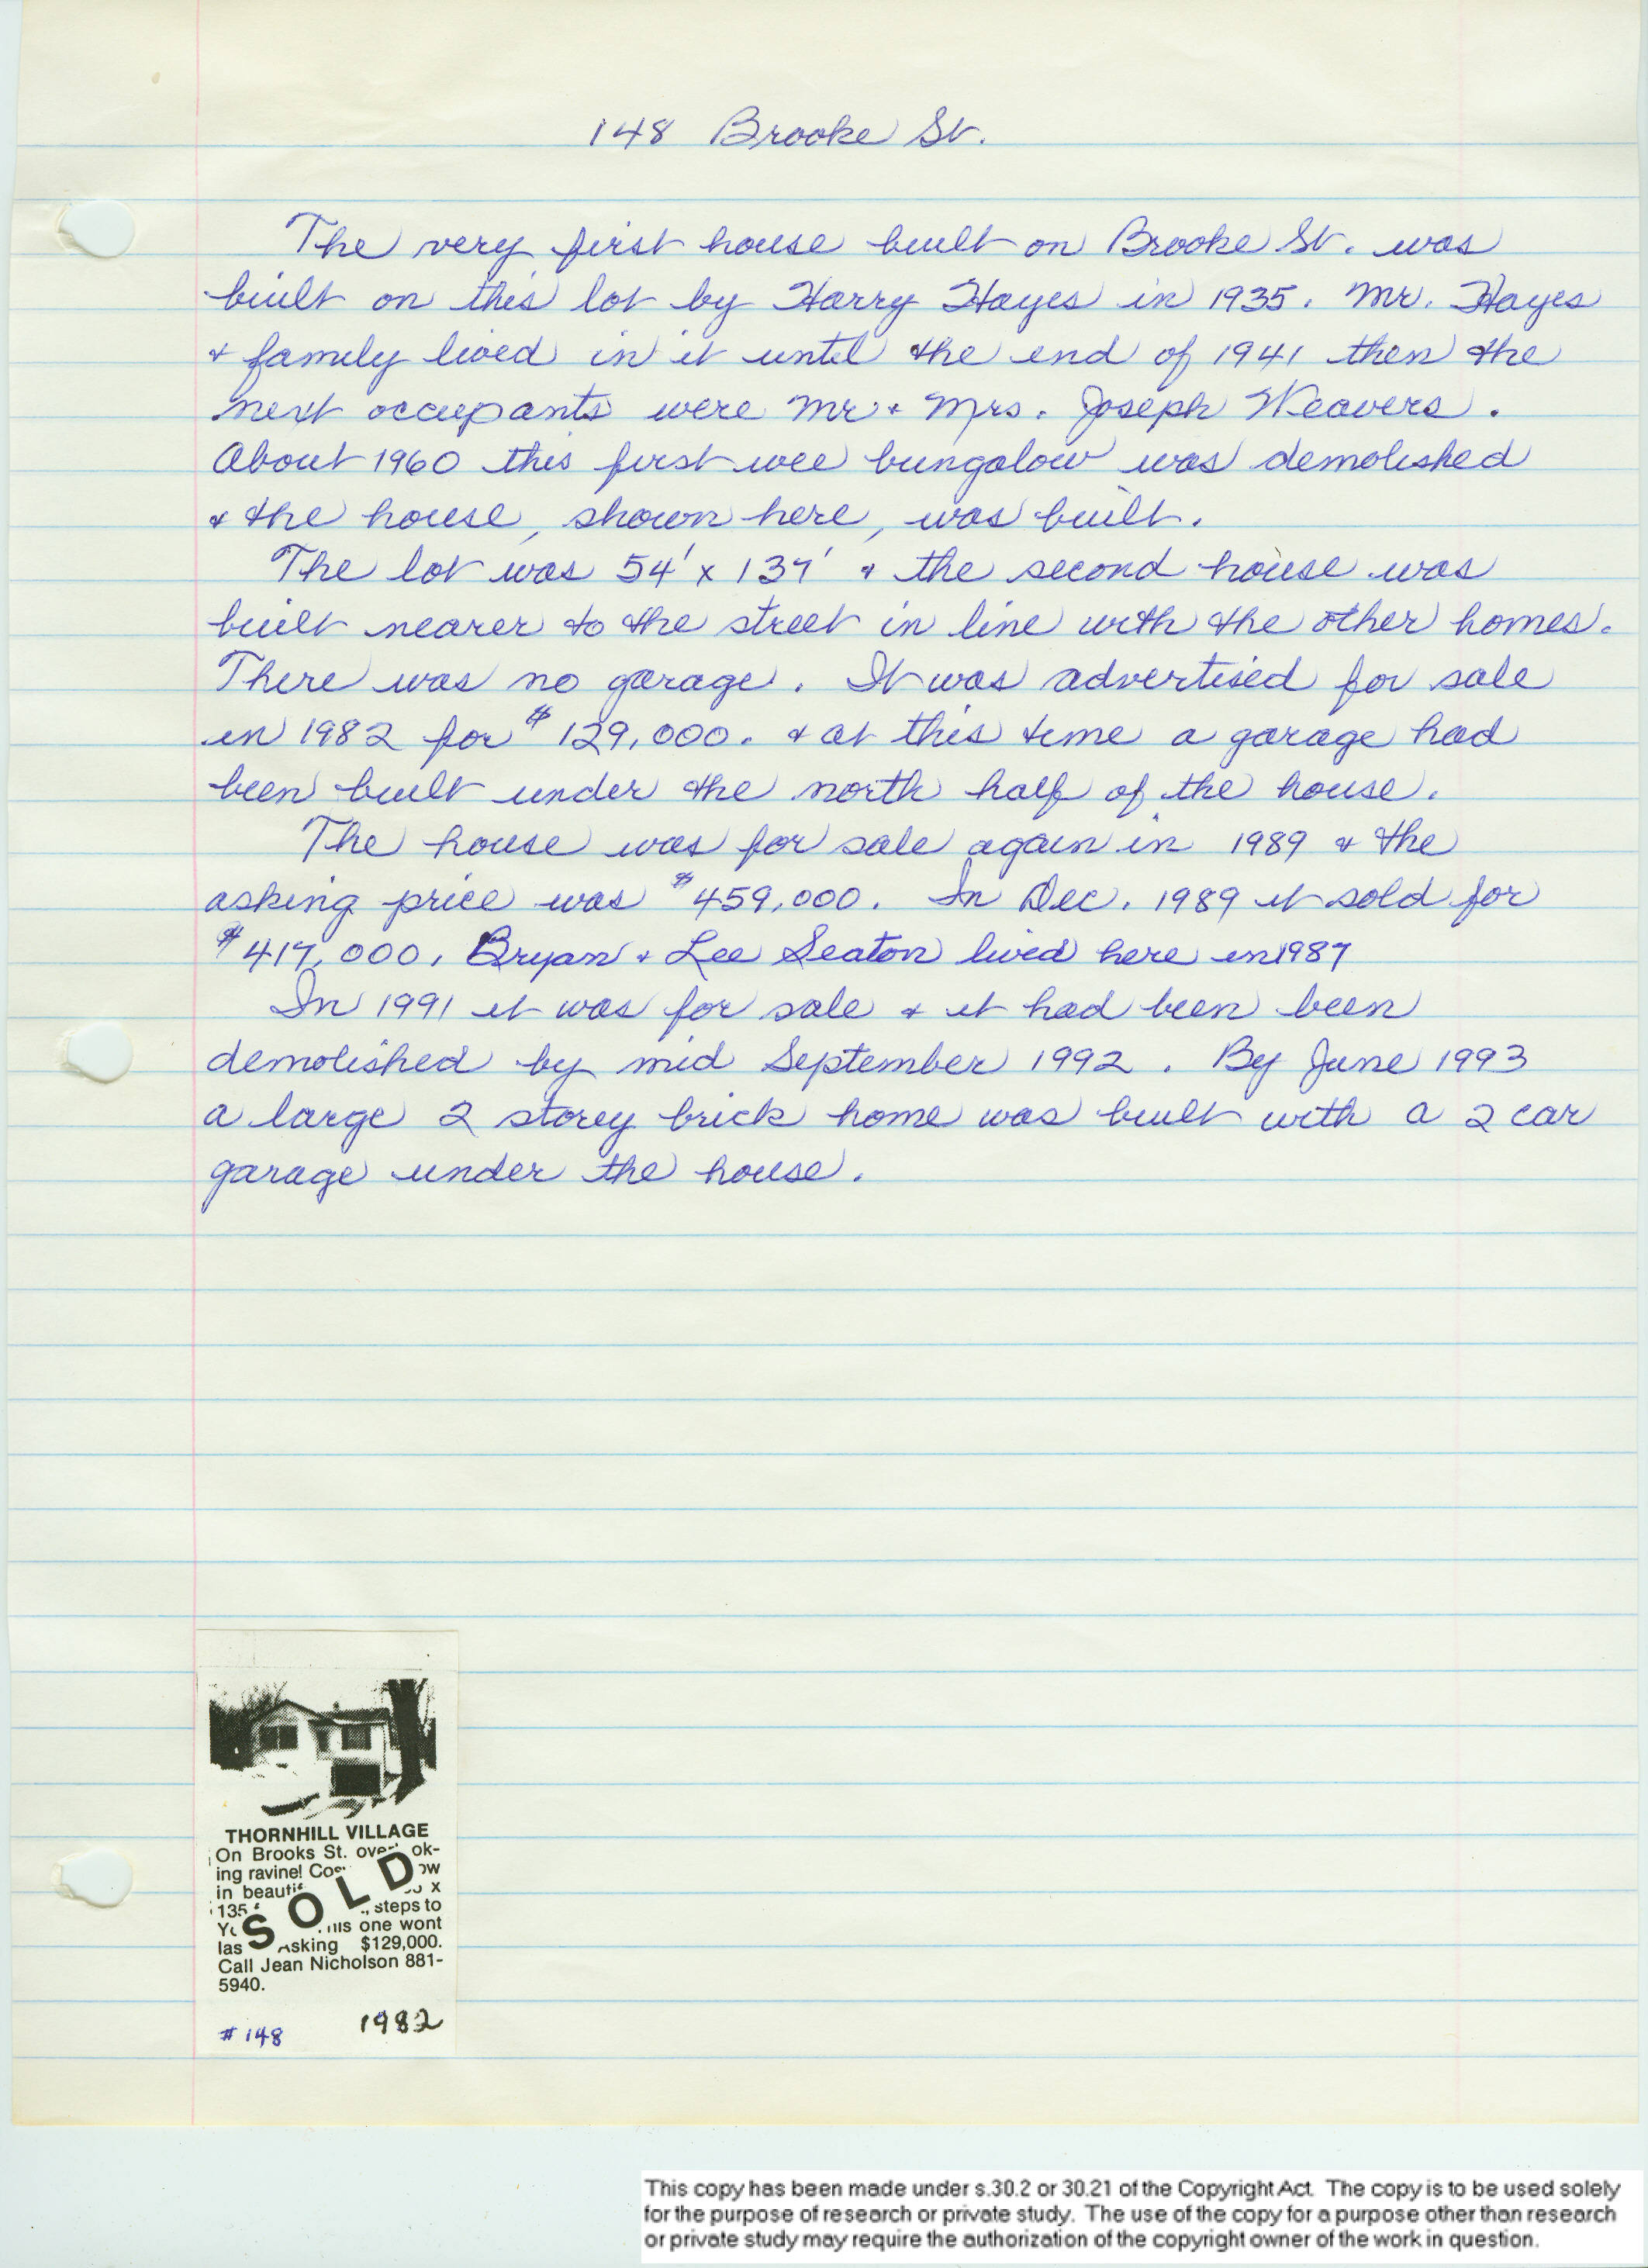 148 Brooke St.
The very first house built on Brooke St. was
built on this lot by Harry Hayes in 1935. Mr. Hayes
+ family lived in it until the end of 1941 then the
next occupants were Mr + Mrs. Joseph Weavers.
About 1960 this first wee bungalow was demolished
+ the house, shown here, was built.
The lot was 54' x 137' + the second house was
built nearer to the street in line with the other homes.
There was no garage. It was advertised for sale
in 1982 for $129,000. + at this time a garage had
been built under the north half of the house.
The house was for sale again in 1989 + the
asking price was $459,000. In Dec. 1989 it sold for
$417,000. Bryan + Lee Seaton lived here in 1987
In 1991 it was for sale + it had been been
demolished by mid September 1992. By June 1993
a large 2 storey brick home was built with a 2 car
garage under the house.
THORNHILL VILLAGE
On Brooks St. ok-
ing ravine!
in x
135 steps to
SOLD
one wont
las Asking $129,000.
Call Jean Nicholson 881-
5940.
#148 1982
This copy has been made under s.30.2 or 30.21 of the Copyright Act. The copy is to be used solely
for the purpose of research or private study. The use of the copy for a purpose other than research
or private study may require the authorization of the copyright owner of the work in question.